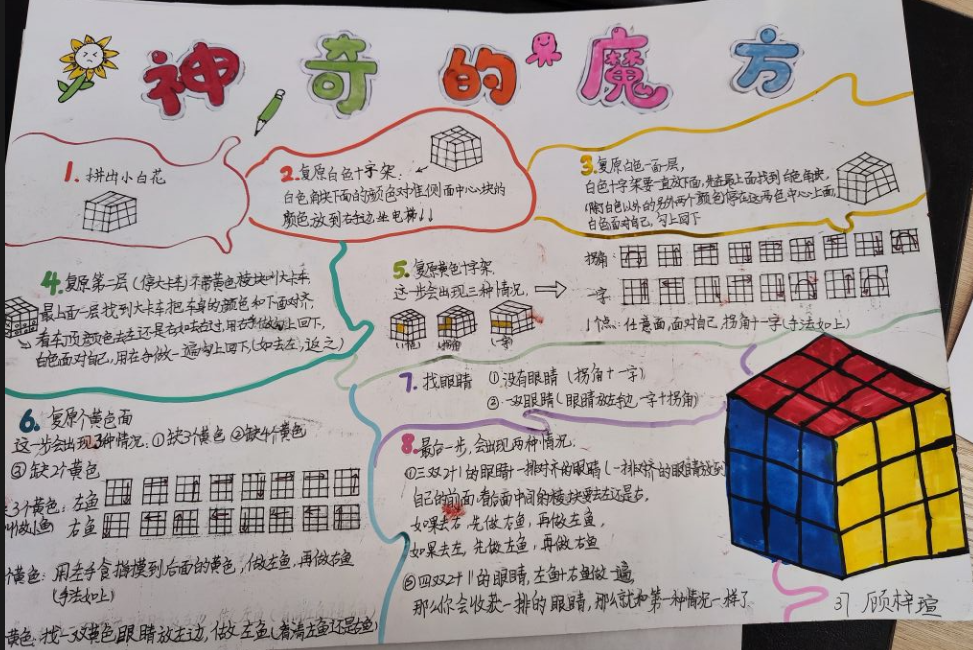 神奇的魔方
1. 拼出小白花
2. 复原白色十字架:
白色角块下面的颜色对准侧面中心块的
颜色放到右手边坐电梯↓↓
3. 复原白色一面一层,
白色十字架要一直放下面,先在最上面找到白色角块,
除白色以外的另外两个颜色停在这两色中心上面,
白色面对自己,勾上回下
4. 复原第二层(停大卡车)不带黄色棱块叫大卡车,
最上面一层找到大卡车把车身的颜色和下面对齐,
看车顶颜色去左还是右如去左过,用右手做勾上回下,
白色面对自己,用左手做一遍勾上回下,(如去左,返之)
5. 复原黄色十字架,
这一步会出现三种情况,
拐角:
一字:
1个点
拐角
一字
1个点:任意面,面对自己,拐角十一字(手法如上)
6. 复原个黄色面
这一步会出现3种情况:①缺3个黄色 ②缺4个黄色
③缺2个黄色
3个黄色:左鱼
叫做小鱼) 右鱼
个黄色:用左手食指摸到后面的黄色,做左鱼,再做右鱼
(手法如上)
黄色:找一双黄色眼睛放左边,做左鱼(看清左鱼还是右鱼)
7. 找眼睛 ①没有眼睛(拐角十一字)
②一双眼睛(眼睛放左边,一字十拐角)
8. 最后一步,会出现两种情况:
①三双2个1的眼睛一排对齐的眼睛(一排对齐的眼睛放到
自己的前面,看后面中间的棱块要去左还是右,
如果去右,先做右鱼,再做左鱼,
如果去左,先做左鱼,再做右鱼
②四双2个11的眼睛,左鱼十右鱼做一遍,
那么你会收获一排的眼睛,那么就和第一种情况一样了
37 顾梓瑄